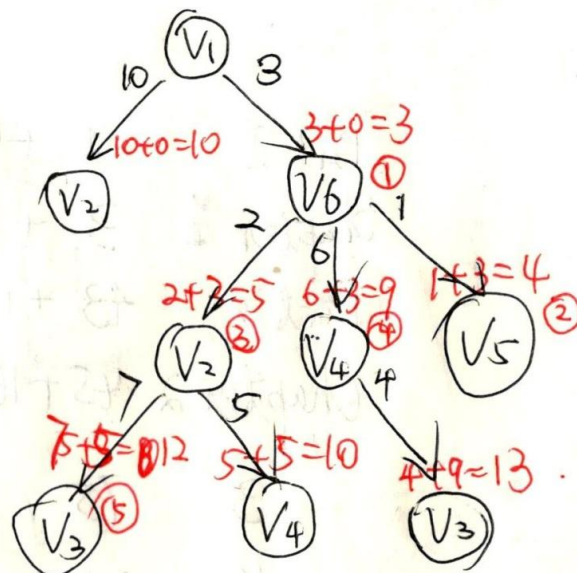 V1
10 3
10+0=10 3+0=3
V2 V6 ①
2 6 1
2+3=5 6+3=9 1+3=4
V2 ③ V4 ④ V5 ②
7 5 4
5+5=10 4+9=13
V3 ⑤ V4 V3